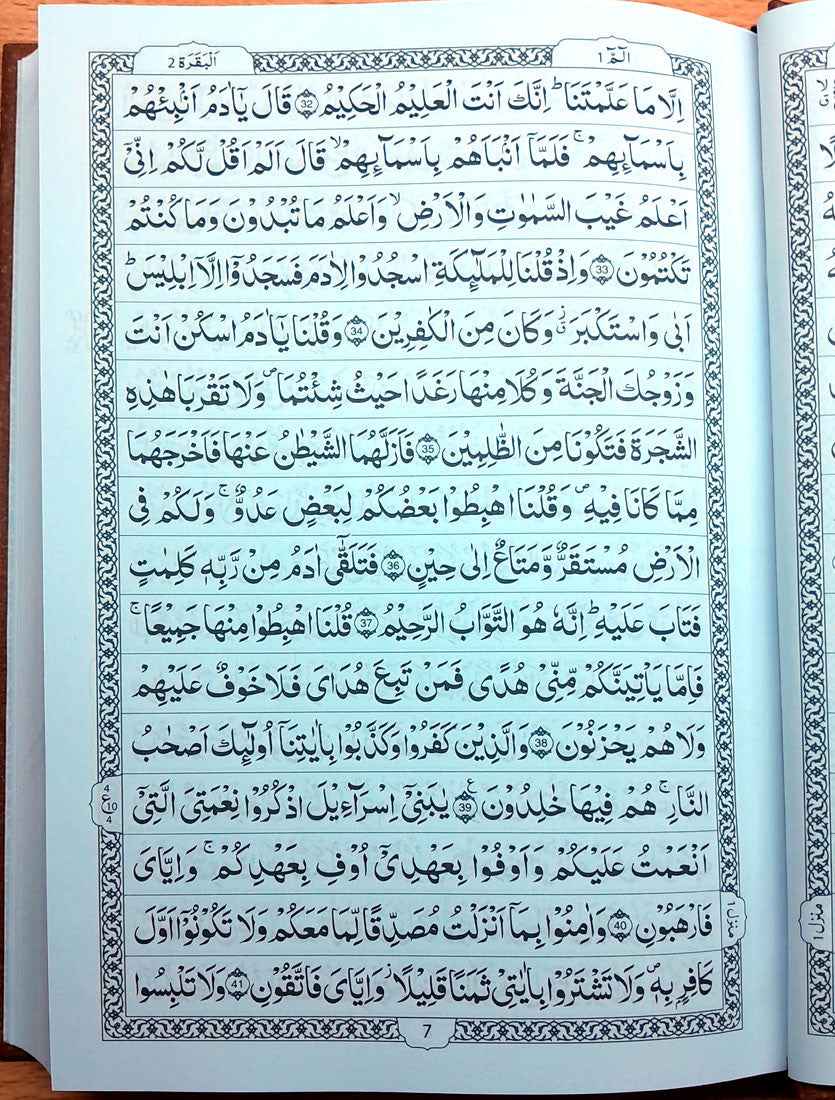 الٓمّٓ 1
اَلْبَقَرَة 2
اِلَّا مَا عَلَّمْتَنَا ؕ اِنَّكَ اَنْتَ الْعَلِیْمُ الْحَكِیْمُ 32 قَالَ یٰۤاٰدَمُ اَنْۢبِئْهُمْ
بِاَسْمَآىِٕهِمْ ۚ فَلَمَّاۤ اَنْۢبَاَهُمْ بِاَسْمَآىِٕهِمْ ۙ قَالَ اَلَمْ اَقُلْ لَّكُمْ اِنِّیْۤ
اَعْلَمُ غَیْبَ السَّمٰوٰتِ وَالْاَرْضِ ۙ وَاَعْلَمُ مَا تُبْدُوْنَ وَمَا كُنْتُمْ
تَكْتُمُوْنَ 33 وَاِذْ قُلْنَا لِلْمَلٰٓىِٕكَةِ اسْجُدُوْا لِاٰدَمَ فَسَجَدُوْۤا اِلَّاۤ اِبْلِیْسَ ؕ
اَبٰی وَاسْتَكْبَرَ ۗ وَكَانَ مِنَ الْكٰفِرِیْنَ 34 وَقُلْنَا یٰۤاٰدَمُ اسْكُنْ اَنْتَ
وَزَوْجُكَ الْجَنَّةَ وَكُلَا مِنْهَا رَغَدًا حَیْثُ شِئْتُمَا ۪ وَلَا تَقْرَبَا هٰذِهِ
الشَّجَرَةَ فَتَكُوْنَا مِنَ الظّٰلِمِیْنَ 35 فَاَزَلَّهُمَا الشَّیْطٰنُ عَنْهَا فَاَخْرَجَهُمَا
مِمَّا كَانَا فِیْهِ ۪ وَقُلْنَا اهْبِطُوْا بَعْضُكُمْ لِبَعْضٍ عَدُوٌّ ۚ وَلَكُمْ فِی
الْاَرْضِ مُسْتَقَرٌّ وَّمَتَاعٌ اِلٰی حِیْنٍ 36 فَتَلَقّٰۤی اٰدَمُ مِنْ رَّبِّهٖ كَلِمٰتٍ
فَتَابَ عَلَیْهِ ؕ اِنَّهٗ هُوَ التَّوَّابُ الرَّحِیْمُ 37 قُلْنَا اهْبِطُوْا مِنْهَا جَمِیْعًا ۚ
فَاِمَّا یَاْتِیَنَّكُمْ مِّنِّیْ هُدًی فَمَنْ تَبِعَ هُدَایَ فَلَا خَوْفٌ عَلَیْهِمْ
وَلَا هُمْ یَحْزَنُوْنَ 38 وَالَّذِیْنَ كَفَرُوْا وَكَذَّبُوْا بِاٰیٰتِنَاۤ اُولٰٓىِٕكَ اَصْحٰبُ
النَّارِ ۚ هُمْ فِیْهَا خٰلِدُوْنَ 39 یٰبَنِیْۤ اِسْرَآءِیْلَ اذْكُرُوْا نِعْمَتِیَ الَّتِیْۤ
4
ع
10
4
اَنْعَمْتُ عَلَیْكُمْ وَاَوْفُوْا بِعَهْدِیْۤ اُوْفِ بِعَهْدِكُمْ ۚ وَاِیَّایَ
فَارْهَبُوْنِ 40 وَاٰمِنُوْا بِمَاۤ اَنْزَلْتُ مُصَدِّقًا لِّمَا مَعَكُمْ وَلَا تَكُوْنُوْۤا اَوَّلَ
منزل ١
كَافِرٍۭ بِهٖ ۪ وَلَا تَشْتَرُوْا بِاٰیٰتِیْ ثَمَنًا قَلِیْلًا ؗ وَاِیَّایَ فَاتَّقُوْنِ 41 وَلَا تَلْبِسُوا
7
منزل ١